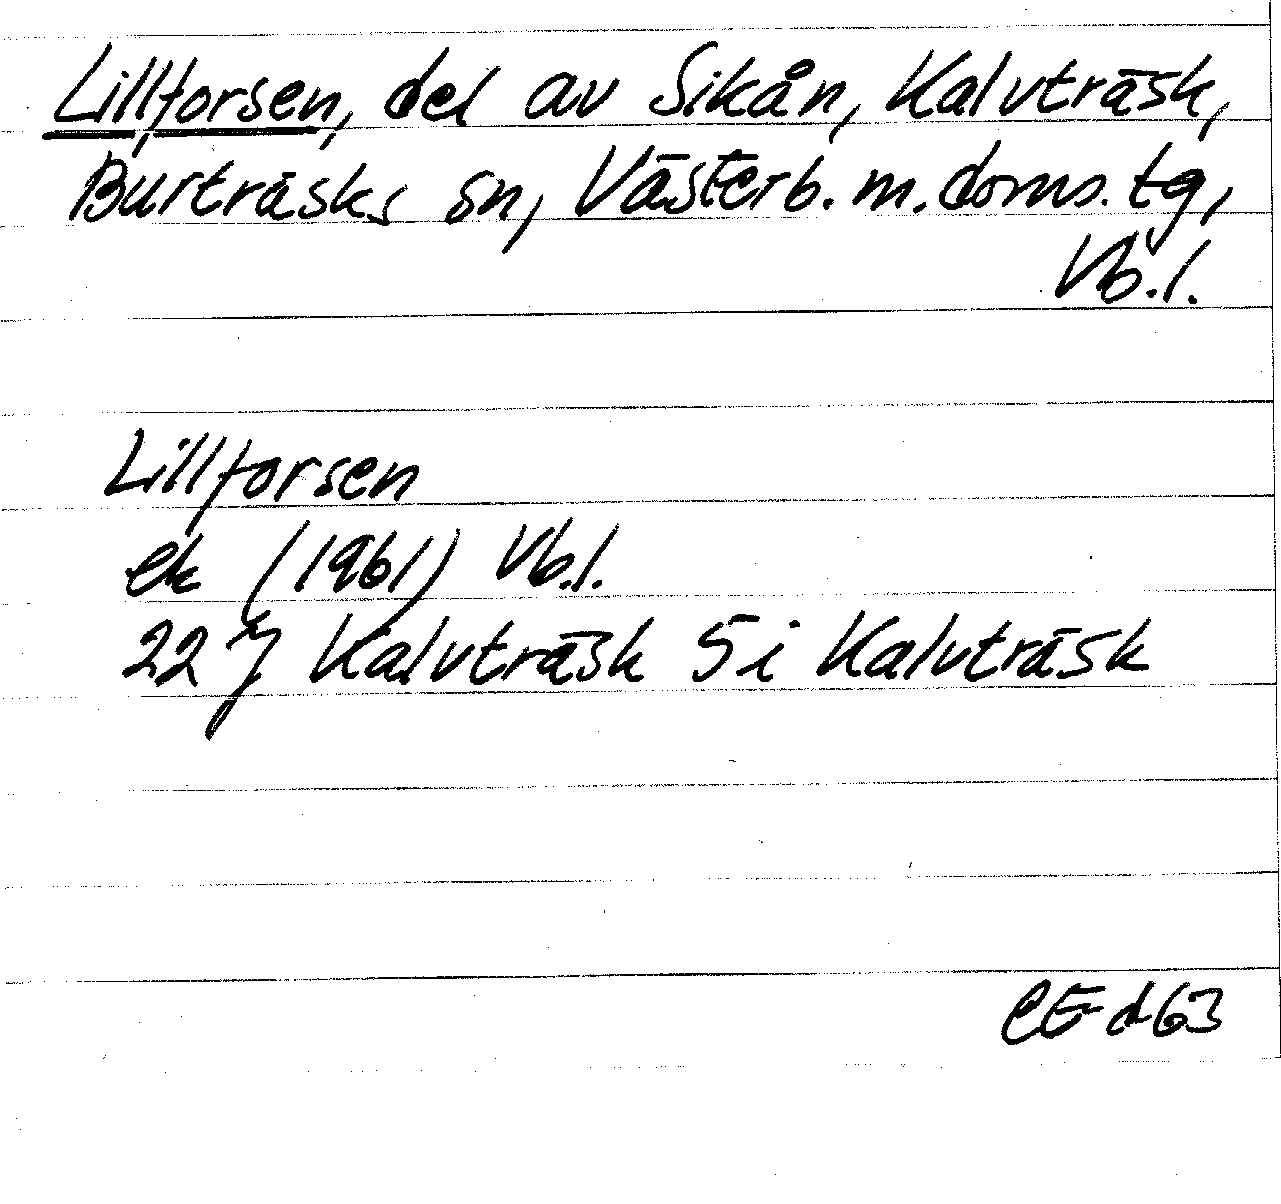 Lillforsen, del av Sikån, Kalvträsk,
Burträsks sn, Västerb. m. doms. tg,
Vb. l.
Lillforsen
ek (1961) Vb. l.
22 J Kalvträsk 5 i Kalvträsk
CE d 63